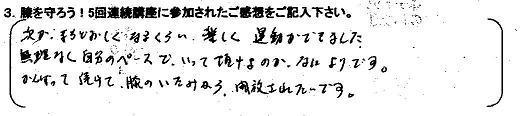 3. 膝を守ろう！5回連続講座に参加されたご感想をご記入下さい。
次が、まちどおしくなるくらい、楽しく 運動ができました
無理なく自分のペースで、いって頂けるのが、なによりです。
がんばって 続けて、膝のいたみから、開放されたいです。